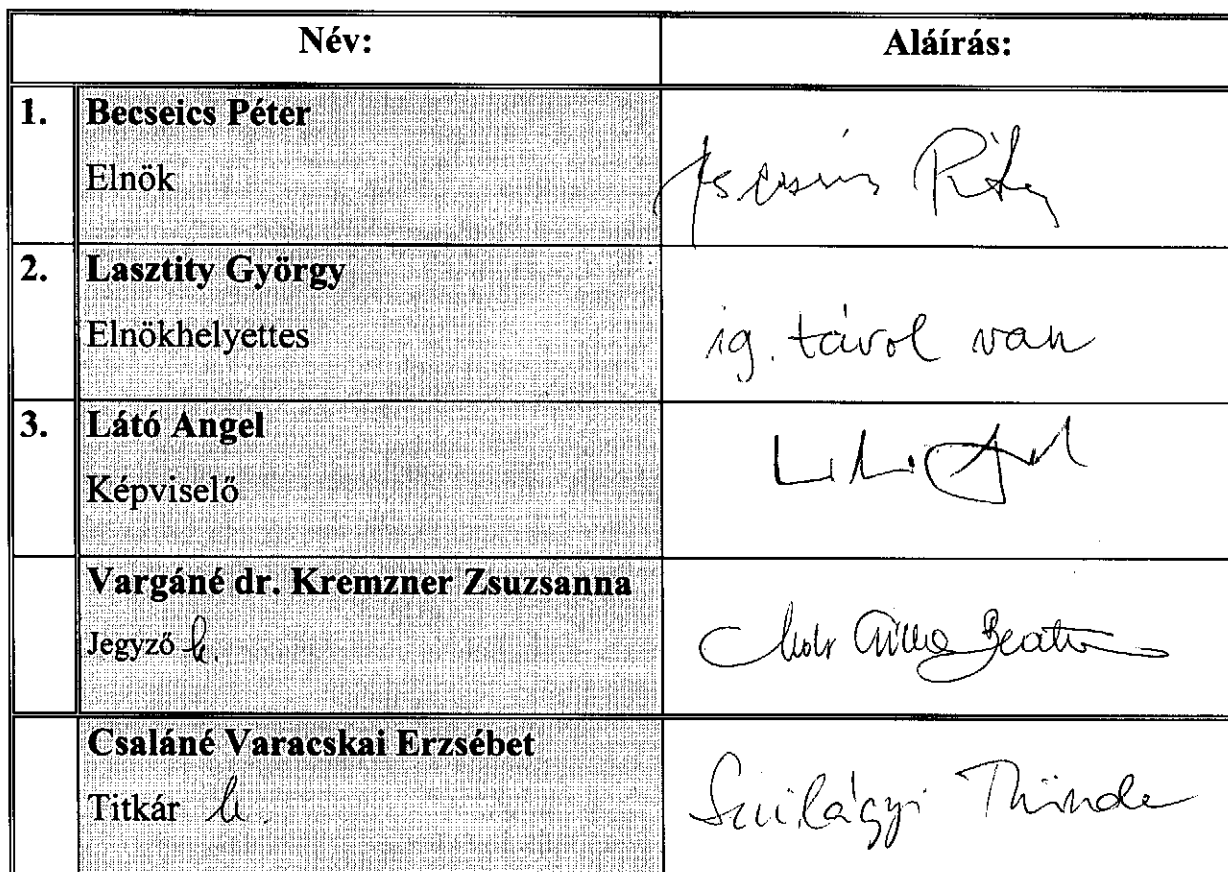 Név: Aláírás:
1. Becseics Péter
Elnök
Becseics Péter
2. Lasztity György
Elnökhelyettes
ig. távol van
3. Látó Angel
Képviselő
Vargáné dr. Kremzner Zsuzsanna
Jegyző h.
Beáta
Csaláné Varacskai Erzsébet
Titkár h.
Szilágyi Tünde